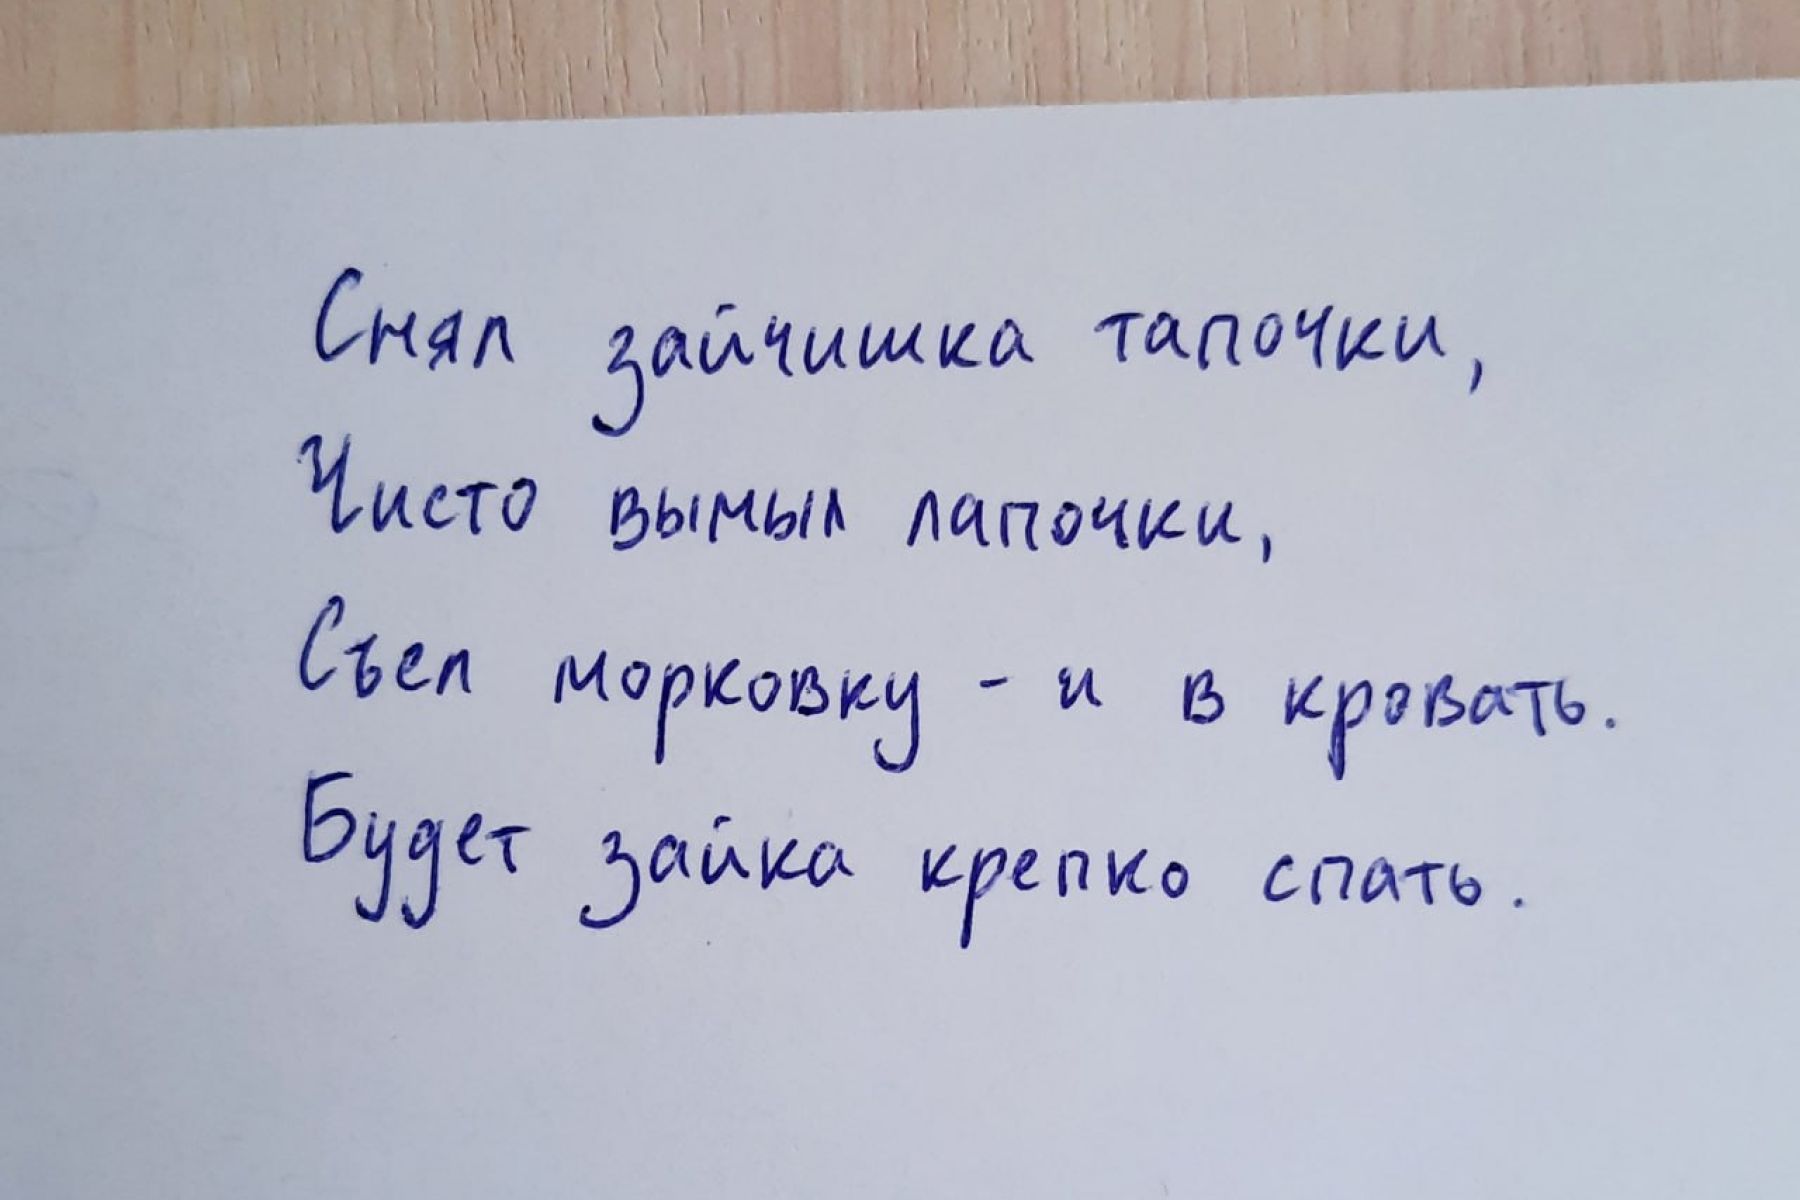 Снял зайчишка тапочки,
Чисто вымыл лапочки,
Съел морковку - и в кровать.
Будет зайка крепко спать.